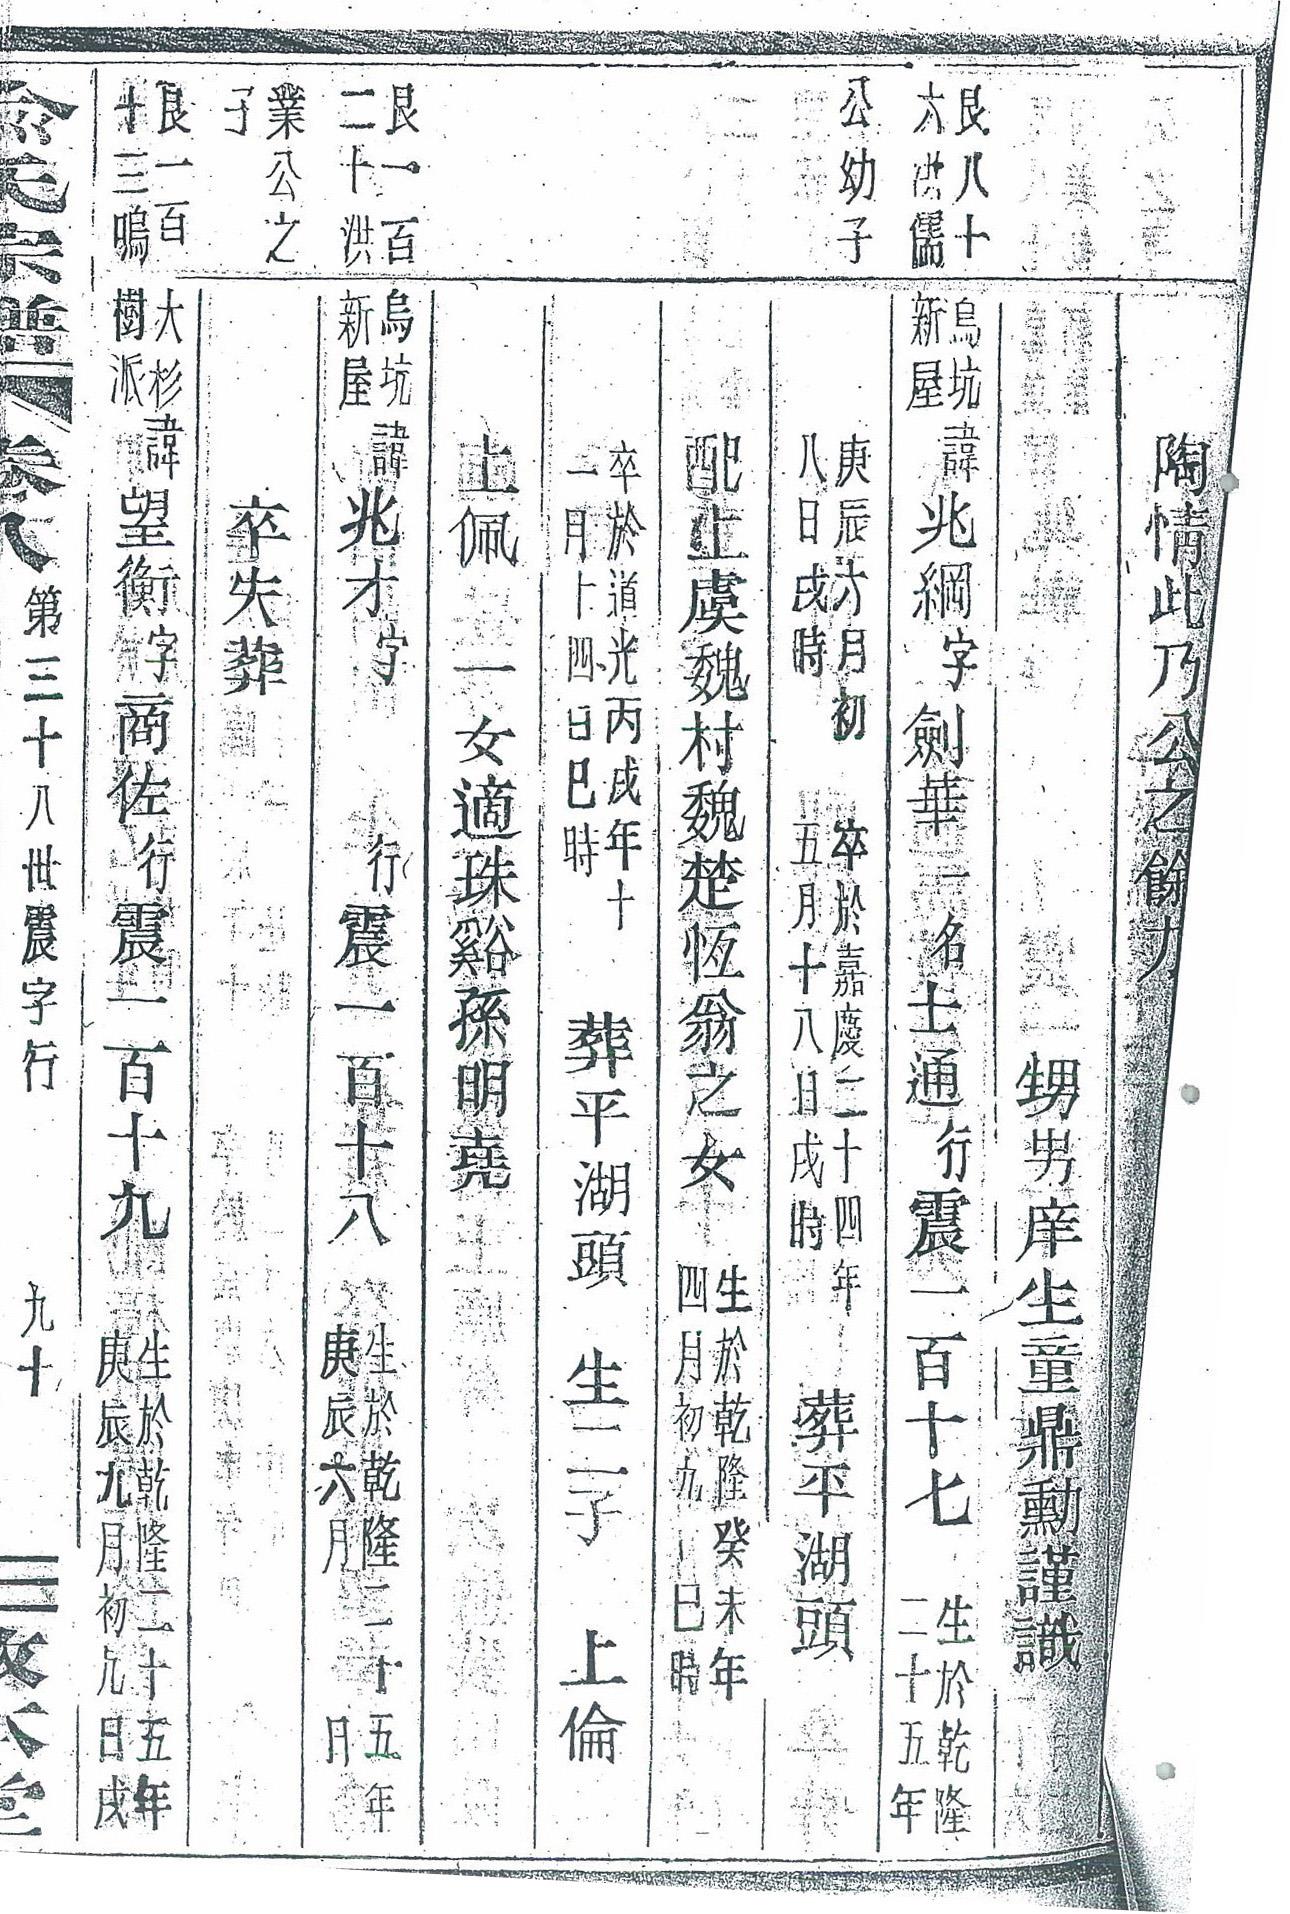 陶情此乃公之餘力
甥男庠生童鼎勳謹識
艮八十六洪儒
烏坑新屋 諱兆綱字劍華一名士通行震一百十七 生於乾隆二十五年
公幼子
庚辰六月初八日戌時 卒於嘉慶二十四年五月十八日戌時 葬平湖頭
配上虞魏村魏楚恆翁之女 生於乾隆癸未年四月初九日巳時
卒於道光丙戌年十一月十四日巳時 葬平湖頭 生二子 上倫
上佩 一女適珠谿孫明堯
艮一百二十洪
烏坑新屋 諱兆才字 行震一百十八 生於乾隆二十五年庚辰六月 日
業公之子
卒失葬
艮一百十三鳴
大杉樹派 諱望衡字商佐行震一百十九 生於乾隆二十五年庚辰九月初九日戌
俞氏宗譜 卷八 第三十八世震字行 九十 敦本堂